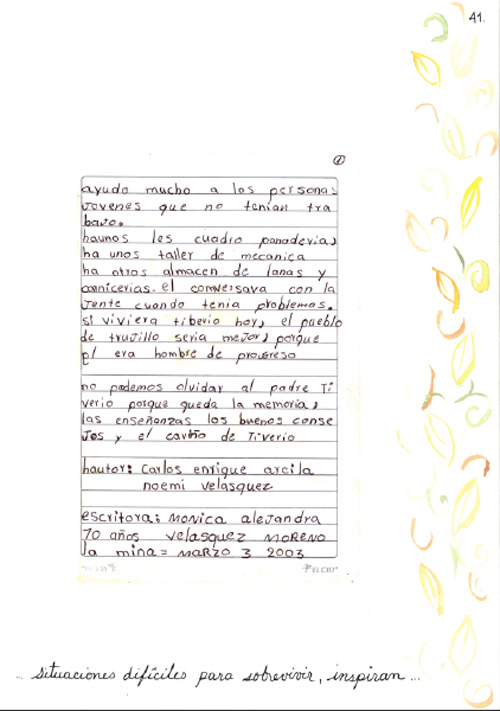 41.
ayudo mucho a las personas
Jovenes que no tenian tra
bajo.
haunos les cuadro panaderia,
ha unos taller de mecanica
ha otros almacen de lanas y
carnicerias. el conversava con la
Jente cuando tenia problemas.
si viviera tiberio hoy, el pueblo
de trujillo seria mejor, porque
el era hombre de progreso
no podemos olvidar al padre Ti
verio porque queda la memoria,
las enseñanzas los buenos conse
Jos y el cariño de Tiverio
hautor: Carlos enrique arcila
noemi velasquez
escritora: Monica alejandra
70 años velasquez MORENO
la mina = MARZO 3 2003
... situaciones difíciles para sobrevivir, inspiran ...